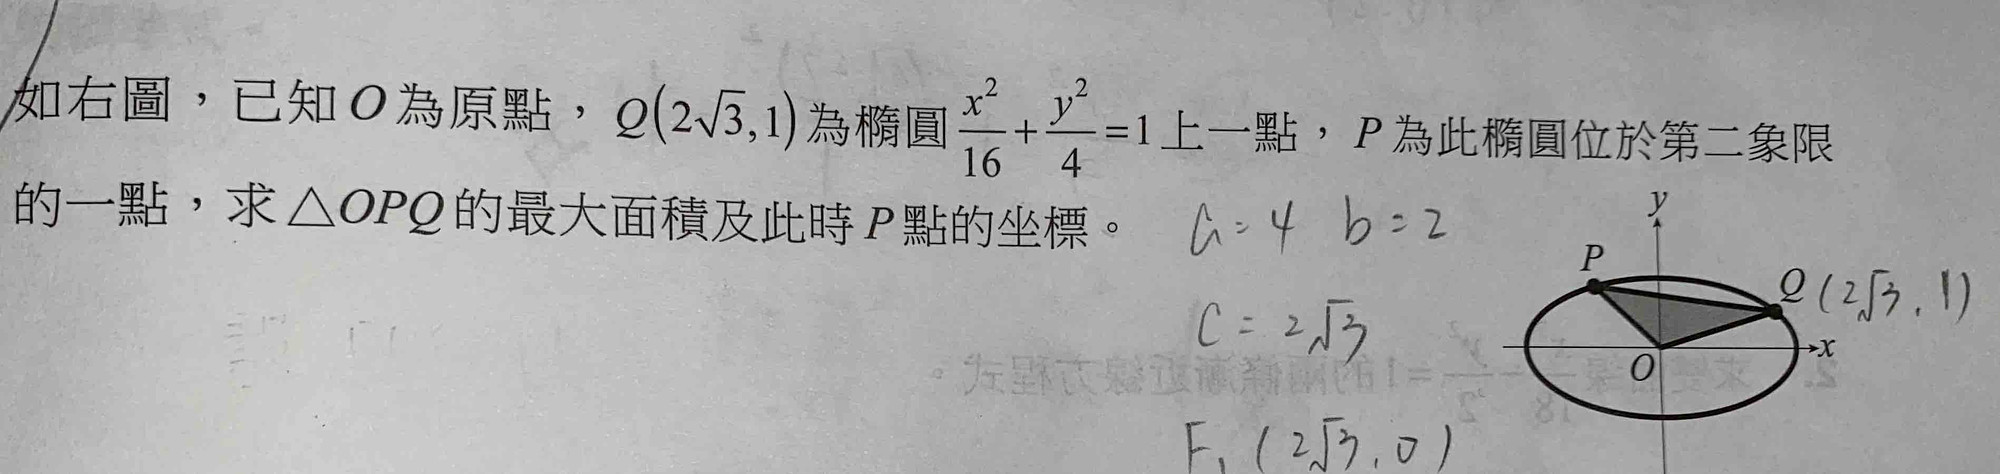 如右圖，已知O為原點，Q(2√3,1)為橢圓x²/16+y²/4=1上一點，P為此橢圓位於第二象限
的一點，求△OPQ的最大面積及此時P點的坐標。
a=4 b=2
C=2√3
F₁(2√3,0)
y
P
Q(2√3,1)
O
x